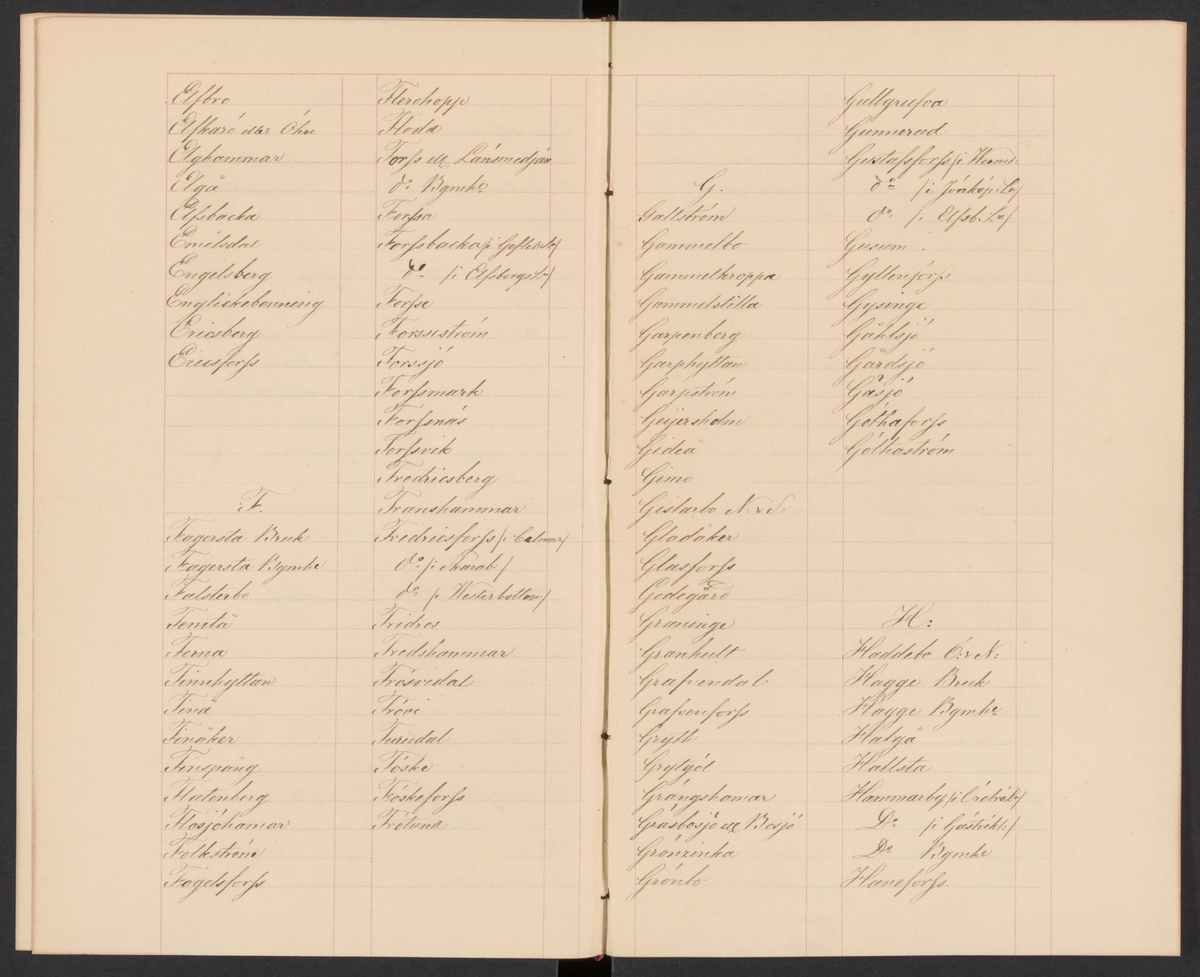 Elfbro
Elfkarö eller Öhn
Elghammar
Elgå
Elfsbacka
Emilsdal
Engelsberg
Englickebenning
Ericsberg
Ericsforss
F.
Fagersta Bruk
Fagersta Bgmke
Falsterbo
Femtå
Ferna
Finnhyttan
Finå
Finåker
Finspång
Flatenberg
Flosjöhamar
Folkström
Fogelsforss
Flerohopp
Floda
Forss ell Länsmedjan
do Bgmke
Forssa
Forssbacka /i Gefleb. Ln/
do /i Elfsborgs Ln/
Forsse
Forsseström
Forssjö
Forssmark
Forssnäs
Forssvik
Fredricsberg
Franshammar
Fredricsforss /i Calmar/
do /i Skarab:/
do /i Westerbotten/
Fridros
Fredshammar
Frösvedal
Frövi
Furudal
Föske
Föskeforss
Frötuna
G.
Gallström
Gammelbo
Gammelkroppa
Gammelstilla
Garpenberg
Garphyttan
Garpström
Geijersholm
Gideå
Gimo
Gislarbo N. v S:
Gladåker
Glasforss
Godegård
Graninge
Granhult
Grafvendal
Grafvenforss
Grytt
Grytgöl
Grängshamar
Gräsbosjö ell Bosjö
Grönsinka
Grönbo
Gullgrufva
Gunnerud
Gustafsforss /i Wermel:
do /i Jönköp: Ln/
do /i Elfsb. Ln/
Gusum
Gyllenforss
Gysinge
Gåhlsjö
Gårdsjö
Gåsjö
Göthaforss
Göthaström
H:
Haddebo Ö: v N:
Hagge Bruk
Hagge Bgmke
Halgå
Hallsta
Hammarby /i Örebro Ln/
Do /i Gästrikl:/
Do Bgmke
Haneforss